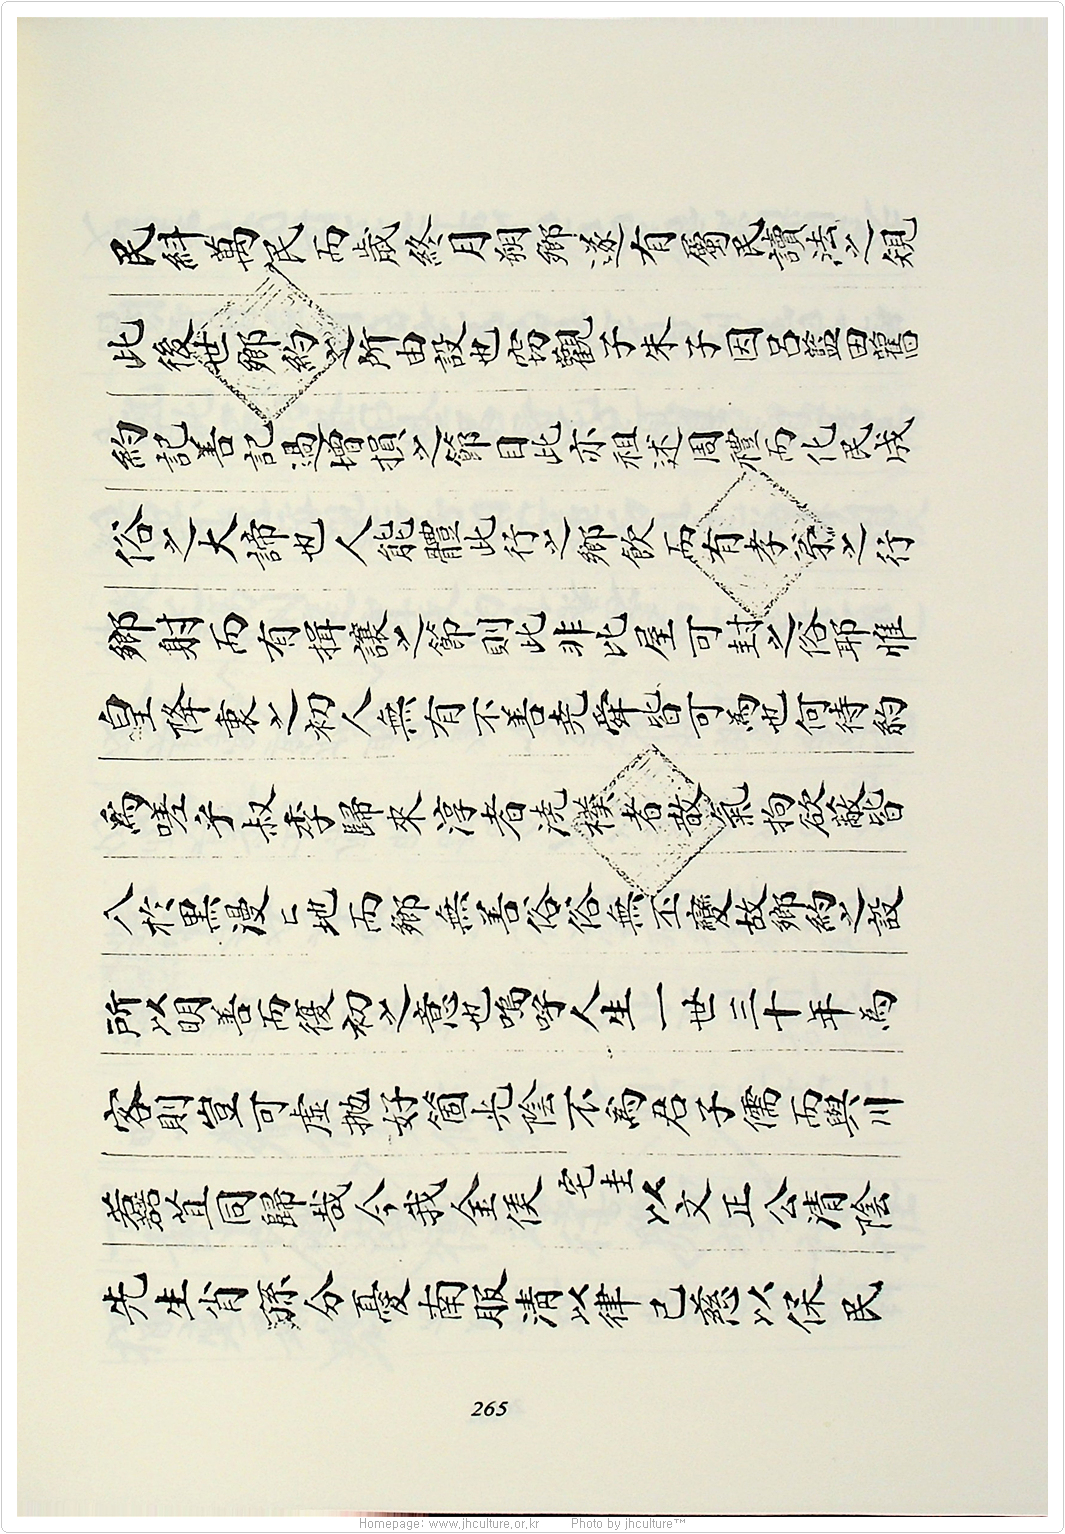 民糾萬民而歲終月朔鄕遂有屬民讀法之規
此後世鄕約之所由設也窃觀子朱子因呂藍田舊
約記善記過增損之節目此亦祖述周禮而化民成
俗之大諦也人能體此行之鄕飮而有孝宗之行
鄕射而有揖讓之節則此非比屋可封之俗耶惟
皇降衷之初人無有不善堯舜皆可為也何待約
爲嗟乎叔季歸來淳者澆樸者散氣拘欲蔽皆
入於黑漫々地而鄕無善俗俗無丕變故鄕約之設
所以明善而復初之意也嗚呼人生一世三十年為
客則豈可虛抛好箇光陰不為君子儒而與川
蕌苴同歸哉今我金侯宅圭以文正公淸陰
先生肖孫分憂南服淸以律己慈以保民
265
Homepage: www.jhculture.or.kr Photo by jhculture™